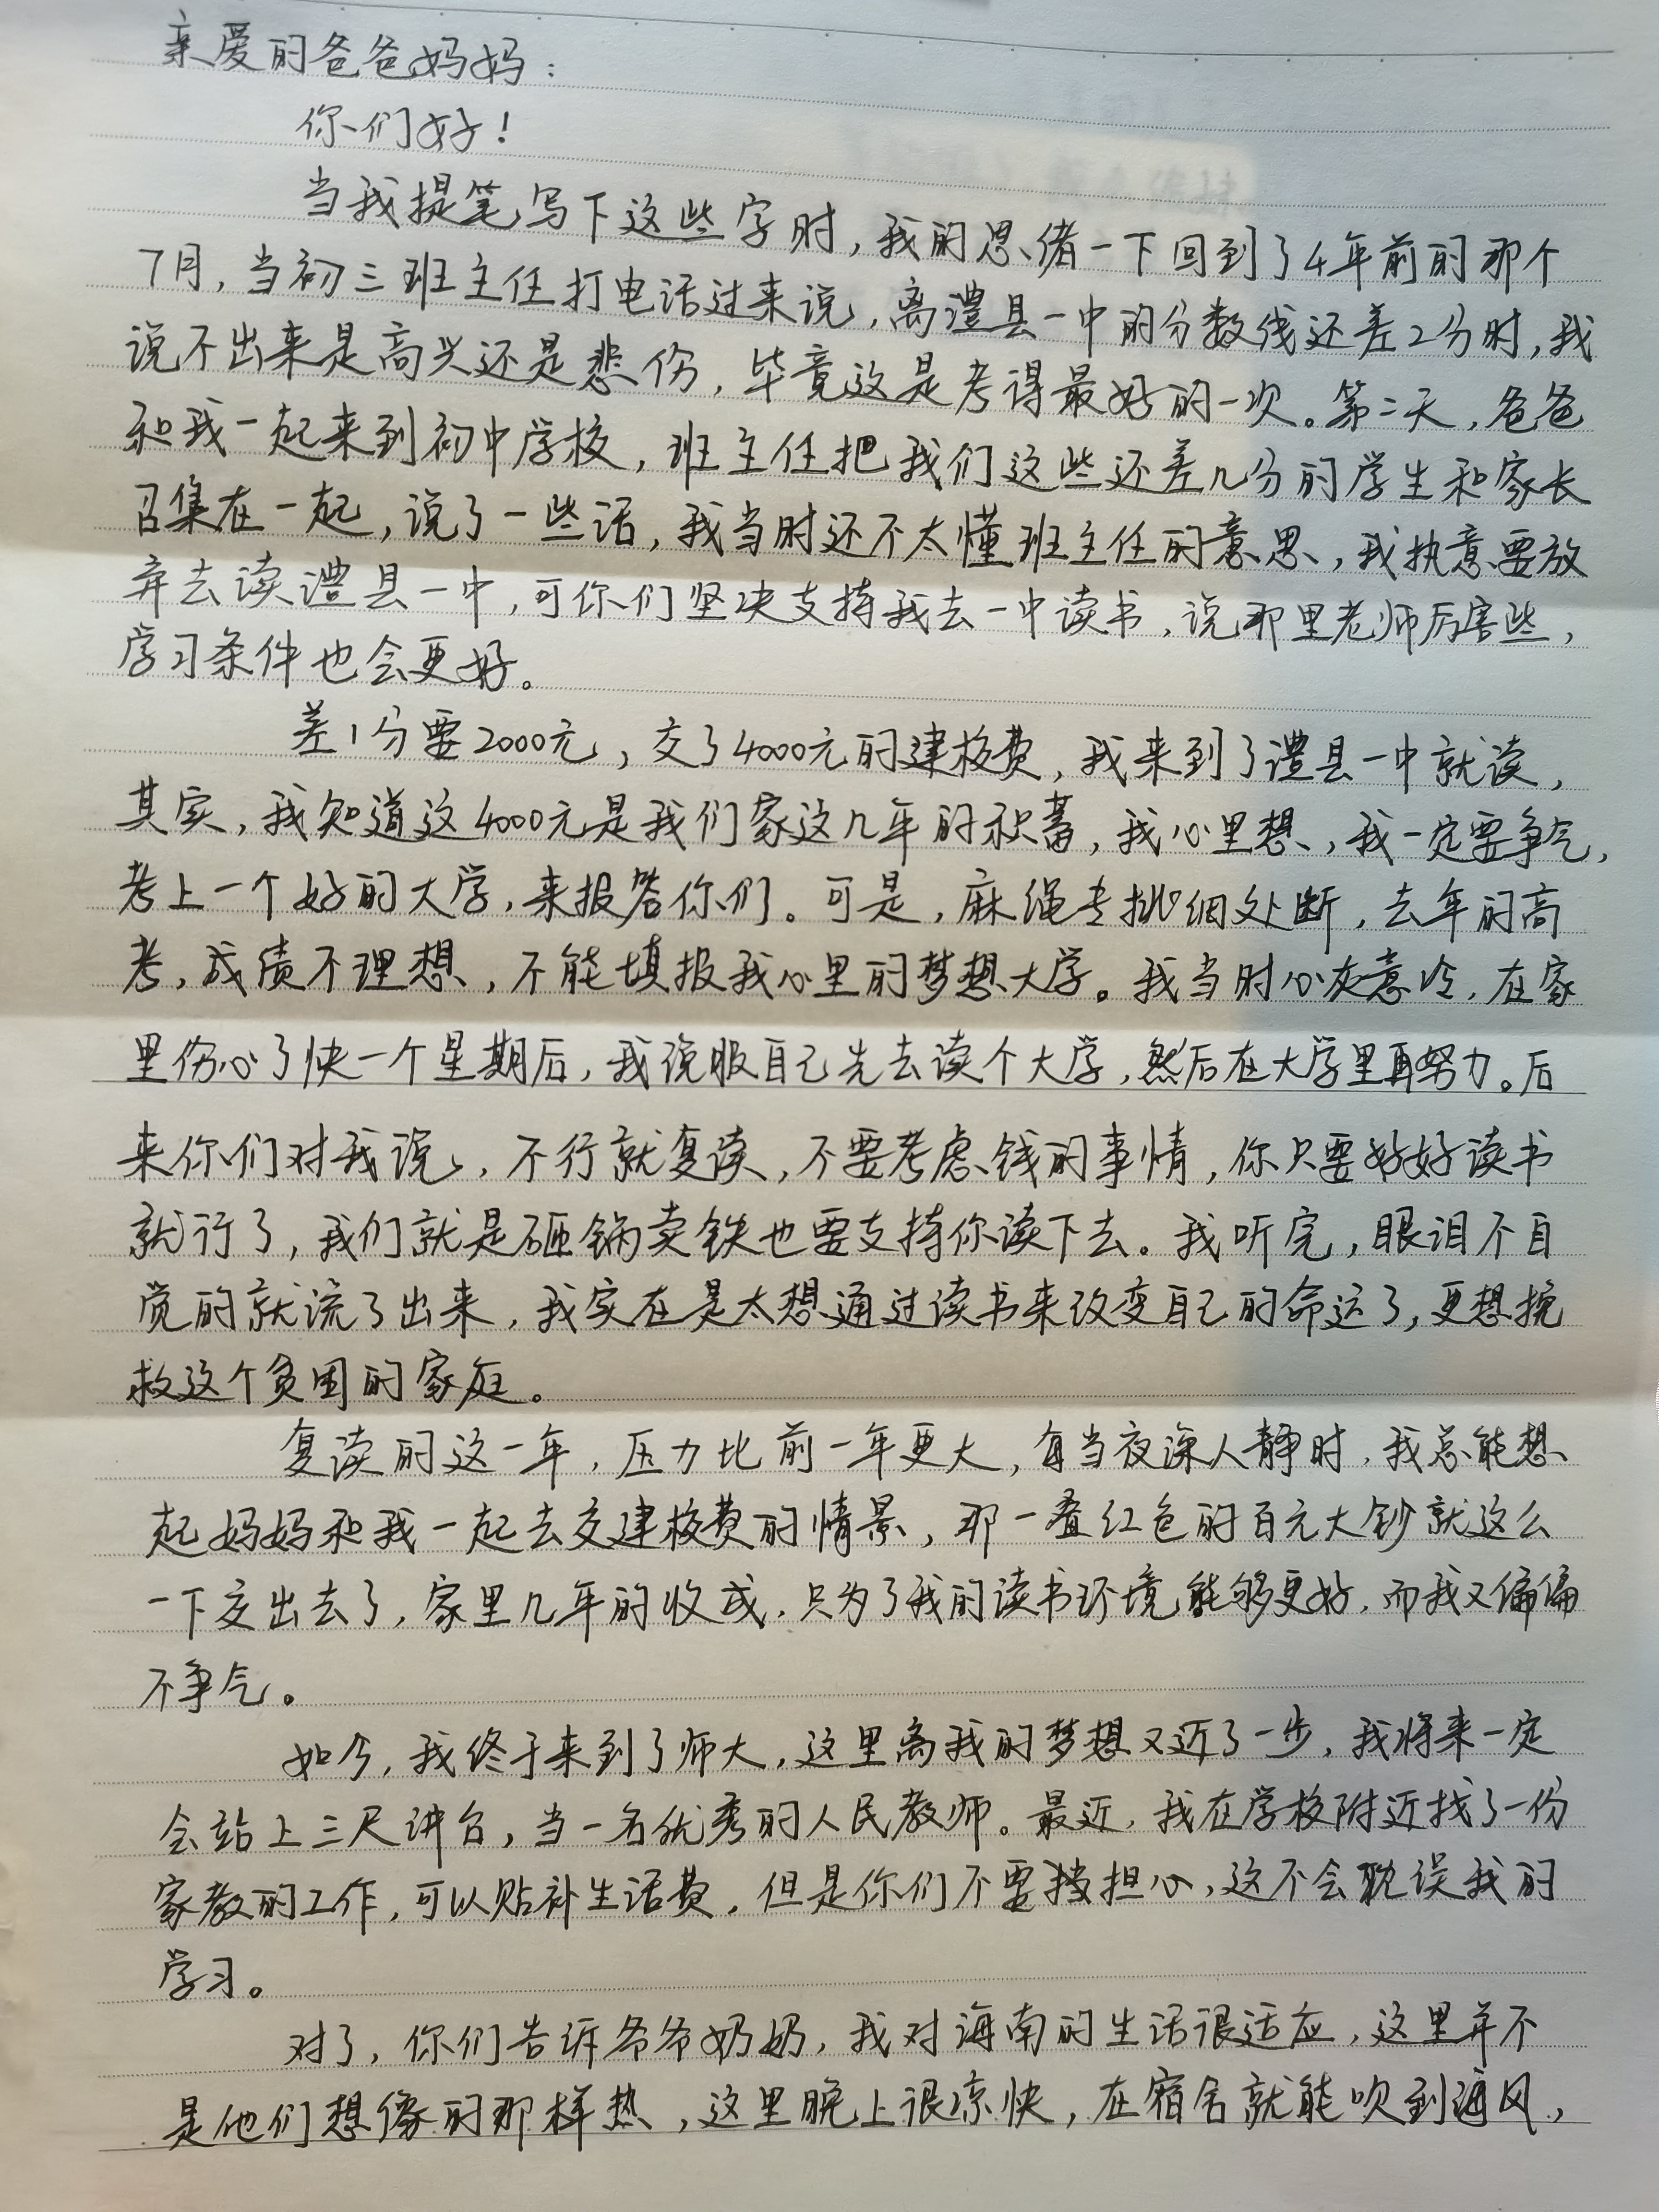 亲爱的爸爸妈妈：
你们好！
当我提笔写下这些字时，我的思绪一下回到了4年前的那个
7月，当初三班主任打电话过来说，离澧县一中的分数线还差2分时，我
说不出来是高兴还是悲伤，毕竟这是考得最好的一次。第二天，爸爸
和我一起来到初中学校，班主任把我们这些还差几分的学生和家长
召集在一起，说了一些话，我当时还不太懂班主任的意思，我执意要放
弃去读澧县一中，可你们坚决支持我去一中读书，说那里老师厉害些，
学习条件也会更好。
差1分要2000元，交了4000元的建校费，我来到了澧县一中就读，
其实，我知道这4000元是我们家这几年的积蓄，我心里想，我一定要争气，
考上一个好的大学，来报答你们。可是，麻绳专挑细处断，去年的高
考，成绩不理想，不能填报我心里的梦想大学。我当时心灰意冷，在家
里伤心了快一个星期后，我说服自己先去读个大学，然后在大学里再努力。后
来你们对我说，不行就复读，不要考虑钱的事情，你只要好好读书
就行了，我们就是砸锅卖铁也要支持你读下去。我听完，眼泪不自
觉的就流了出来，我实在是太想通过读书来改变自己的命运了，更想挽
救这个贫困的家庭。
复读的这一年，压力比前一年更大，每当夜深人静时，我总能想
起妈妈和我一起去交建校费的情景，那一叠红色的百元大钞就这么
一下交出去了，家里几年的收成，只为了我的读书环境能够更好，而我又偏偏
不争气。
如今，我终于来到了师大，这里离我的梦想又近了一步，我将来一定
会站上三尺讲台，当一名优秀的人民教师。最近，我在学校附近找了一份
家教的工作，可以贴补生活费，但是你们不要担心，这不会耽误我的
学习。
对了，你们告诉爷爷奶奶，我对海南的生活很适应，这里并不
是他们想像的那样热，这里晚上很凉快，在宿舍就能吹到海风，